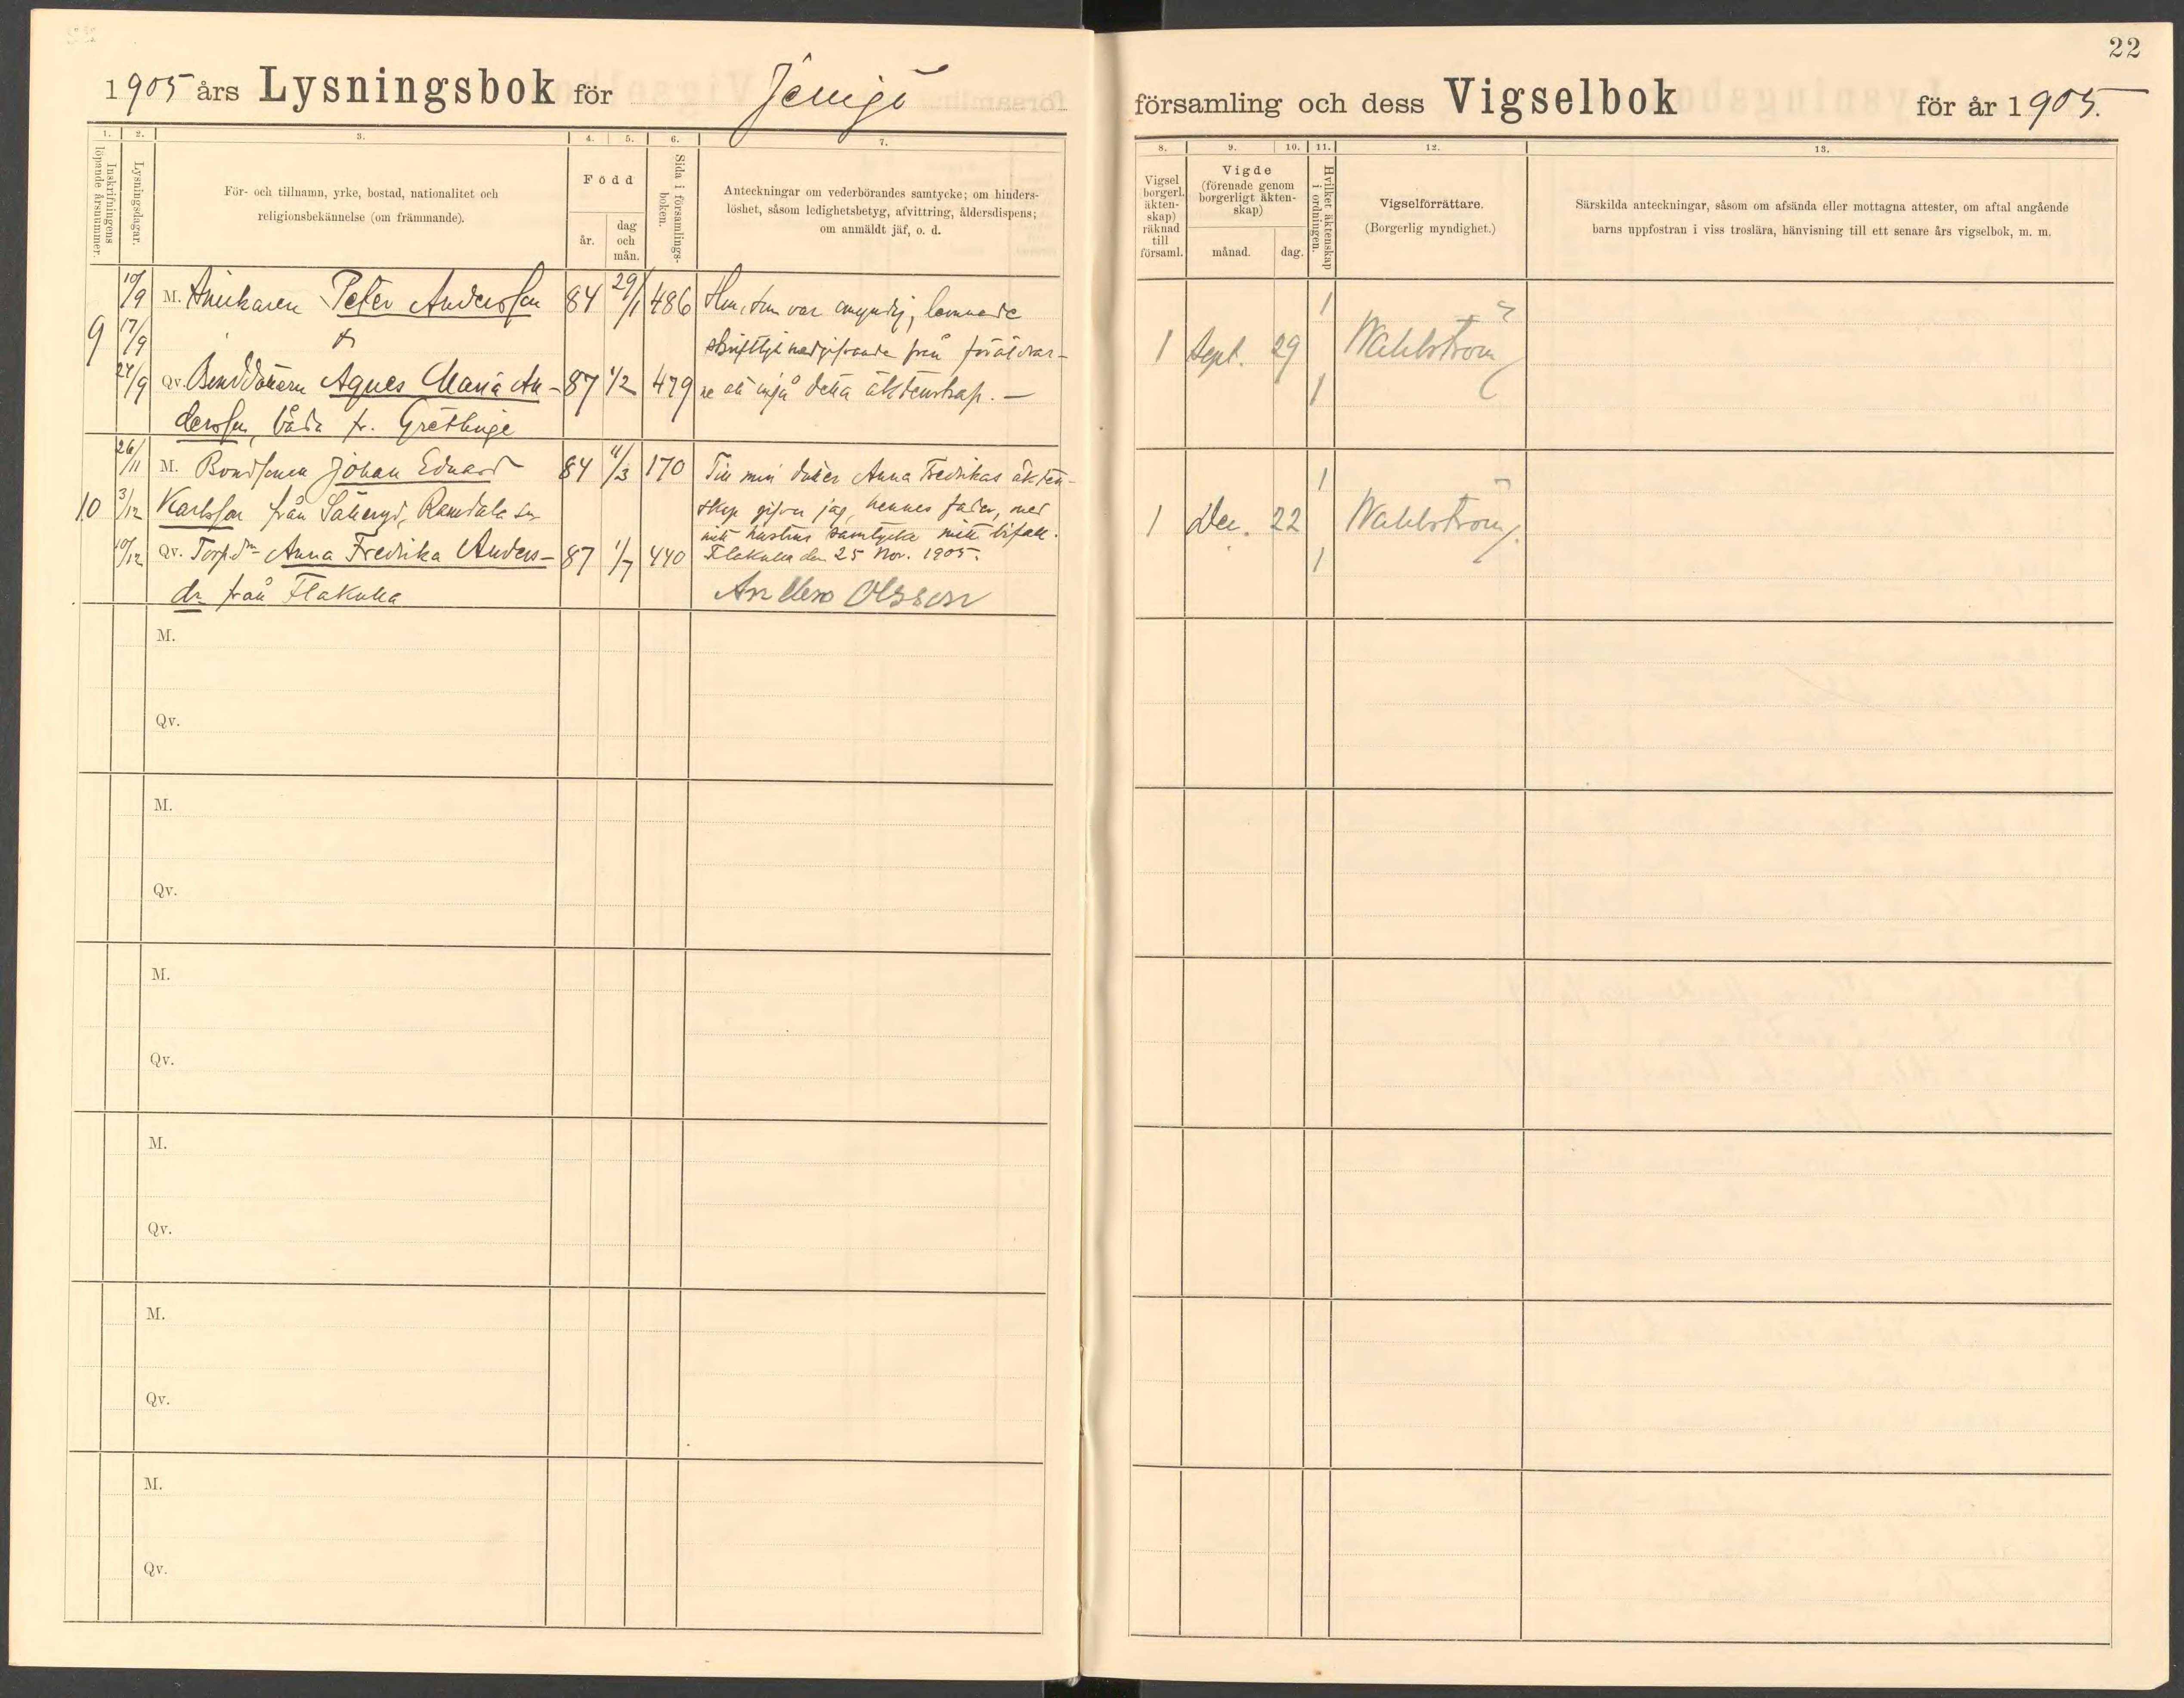 1905 års Lysningsbok för Jemjö
1. 2. 3. 4. 5. 6. 7.
Inskrifningens löpande årsnummer.
Lysningsdagar.
För- och tillnamn, yrke, bostad, nationalitet och
religionsbekännelse (om främmande).
Född
år.
dag
och
mån.
Sida i församlings-
boken.
Anteckningar om vederbörandes samtycke; om hinders-
löshet, såsom ledighetsbetyg, afvittring, åldersdispens;
om anmäldt jäf, o. d.
9
10/9 M. Peter Andersson 84 29/1 486 som var omyndig, lemnade
17/9 skriftligt medgifvande från föräldrar-
24/9 Qv. Bonddottern Agnes Maria An- 87 1/2 479 ne att ingå detta äktenskap. —
dersson, båda fr. Gretlinge
26/11 M. Bondsonen Johan Eduard 84 4/3 170 Till min dotter Anna Fredrikas äkten-
10 3/12 Karlsson från Säteryd, Ramdala sn skap gifver jag, hennes fader, med
min hustrus samtycke mitt bifall.
10/12 Qv. Torp.dr Anna Fredrika Anders- 87 1/7 440 Flakulla den 25 Nov. 1905.
dr från Flakulla Anders Olsson
M.
Qv.
M.
Qv.
M.
Qv.
M.
Qv.
M.
Qv.
M.
Qv.
22
församling och dess Vigselbok för år 1905.
8. 9. 10. 11. 12. 13.
Vigsel
(borgerl.
äkten-
skap)
räknad
till
församl.
Vigde
(förenade genom
borgerligt äkten-
skap)
månad. dag.
Hvilket äktenskap
i ordningen.
Vigselförrättare.
(Borgerlig myndighet.)
Särskilda anteckningar, såsom om afsända eller mottagna attester, om aftal angående
barns uppfostran i viss troslära, hänvisning till ett senare års vigselbok, m. m.
1
1 Sept. 29 Wahlström
1
1
1 Dec. 22 Wahlström.
1